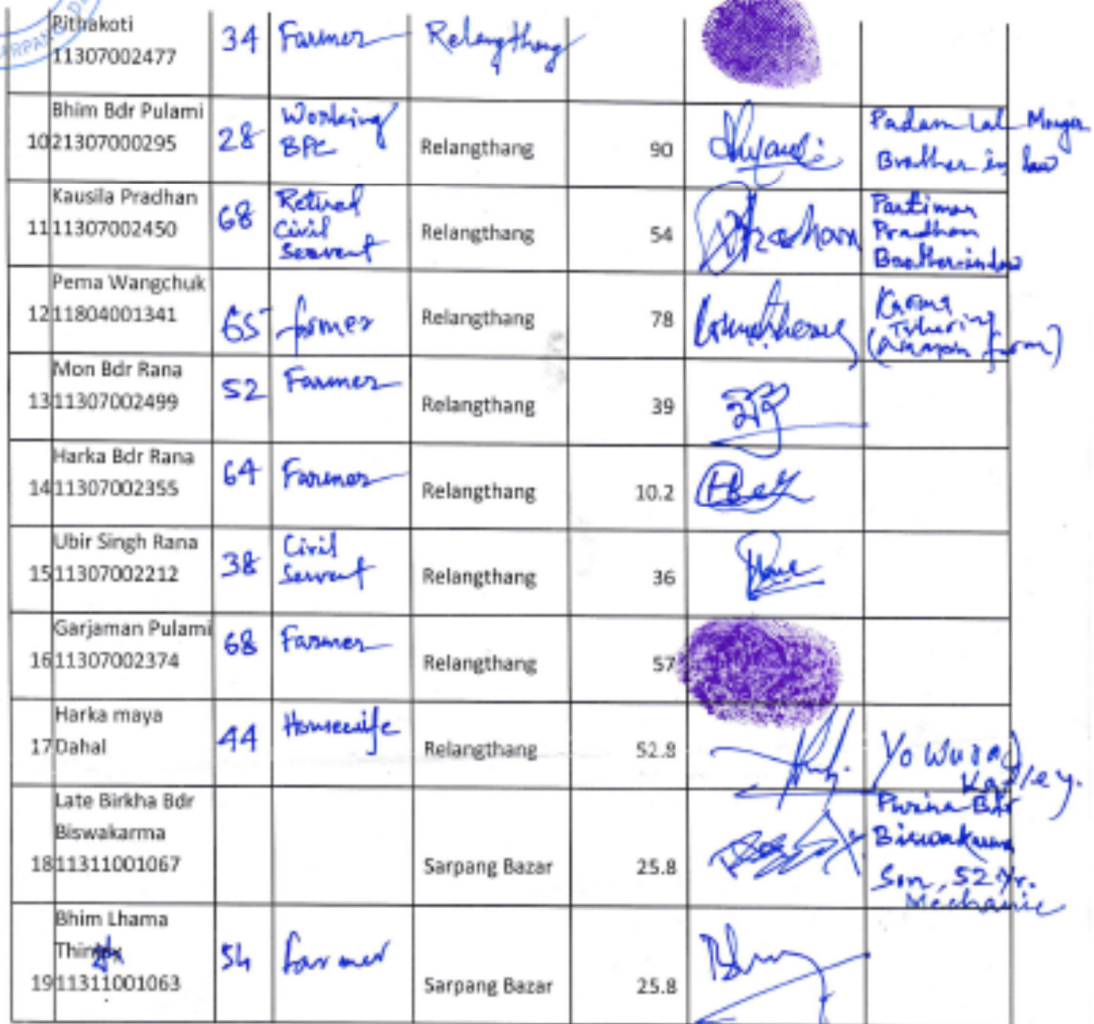 RPANG D
Pithakoti
11307002477
34
Farmer
Relangthang
Bhim Bdr Pulami
10
21307000295
28
Working
BPC
Relangthang
90
Padam Lal
Brother in law
Kausila Pradhan
11
11307002450
68
Retired
Civil
Servent
Relangthang
54
Pradhan
Brother-in-law
Pema Wangchuk
12
11804001341
65
farmer
Relangthang
78
Karma
Tshering
Mon Bdr Rana
13
11307002499
52
Farmer
Relangthang
39
Harka Bdr Rana
14
11307002355
64
Farmer
Relangthang
10.2
Ubir Singh Rana
15
11307002212
38
Civil
Servent
Relangthang
36
Garjaman Pulami
16
11307002374
68
Farmer
Relangthang
57
Harka maya
17
Dahal
44
Housewife
Relangthang
52.8
Late Birkha Bdr
Biswakarma
18
11311001067
Sarpang Bazar
25.8
Bdr
Biswakarma
Son, 52 Yr.
Mechanic
Bhim Lhama
19
11311001063
54
farmer
Sarpang Bazar
25.8